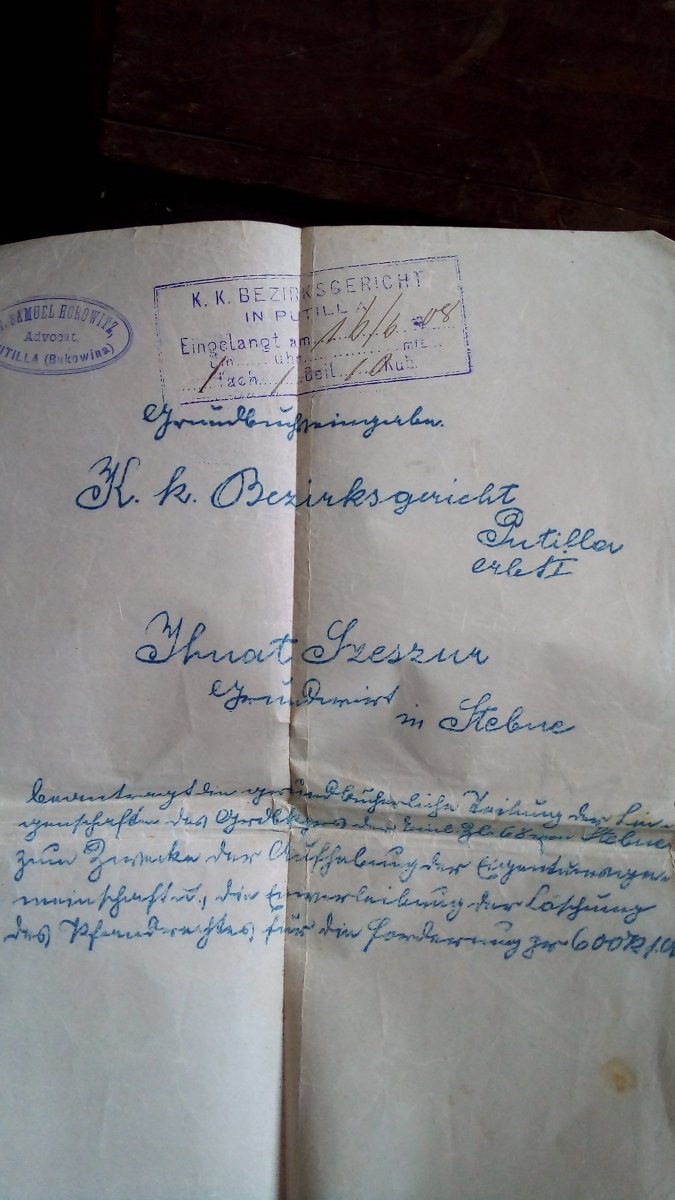 SAMUEL HOROWITZ,
Advocat,
PUTILLA (Bukowina)
K. K. BEZIRKSGERICHT
IN PUTILLA
Eingelangt am 16/6 08
Um uhr mit
1 fach 1 Beil 10 Rub.
Grundbuchseingabe.
K. k. Bezirksgericht
Putilla
Ihnat Szeszur
Grundwirt
in Stebne
beantragt die grundbücherliche Teilung der Lie-
genschaften des der Einl Zl 68 von Stebne
zum Zwecke der Aufhebung der Eigentumsge-
meinschaft u., die Einverleibung der Löschung
des Pfandrechtes, für die Forderung pr 600 K